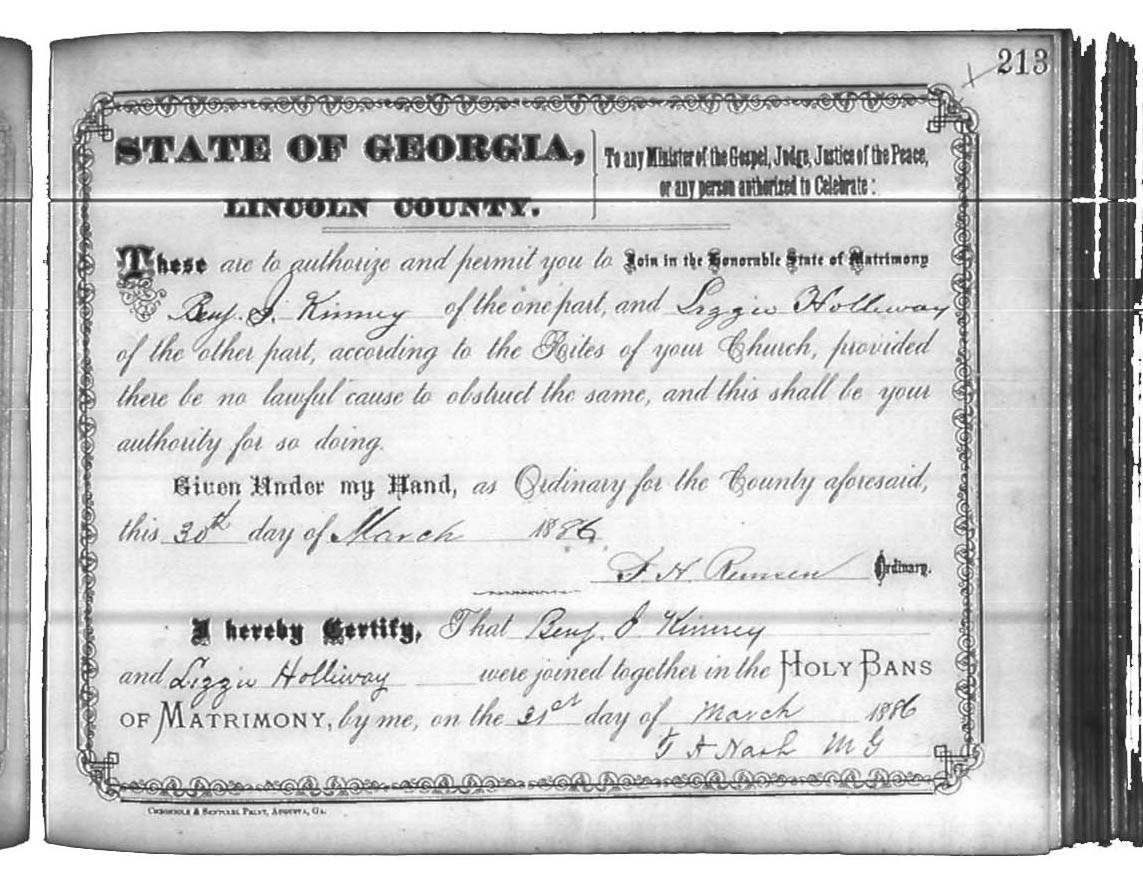 213
STATE OF GEORGIA,
LINCOLN COUNTY.
To any Minister of the Gospel, Judge, Justice of the Peace,
or any person authorized to Celebrate:
These are to authorize and permit you to Join in the Honorable State of Matrimony
Benj. J. Kinney of the one part, and Lizzie Holliway
of the other part, according to the Rites of your Church, provided
there be no lawful cause to obstruct the same, and this shall be your
authority for so doing.
Given Under my Hand, as Ordinary for the County aforesaid,
this 30th day of March 1886
F. H. Remsen Ordinary.
I hereby Certify, That Benj. J Kinney
and Lizzie Holliway were joined together in the HOLY BANS
OF MATRIMONY, by me, on the 31st day of March 1886
T A Nash M G
CHRONICLE & SENTINEL PRINT, AUGUSTA, GA.